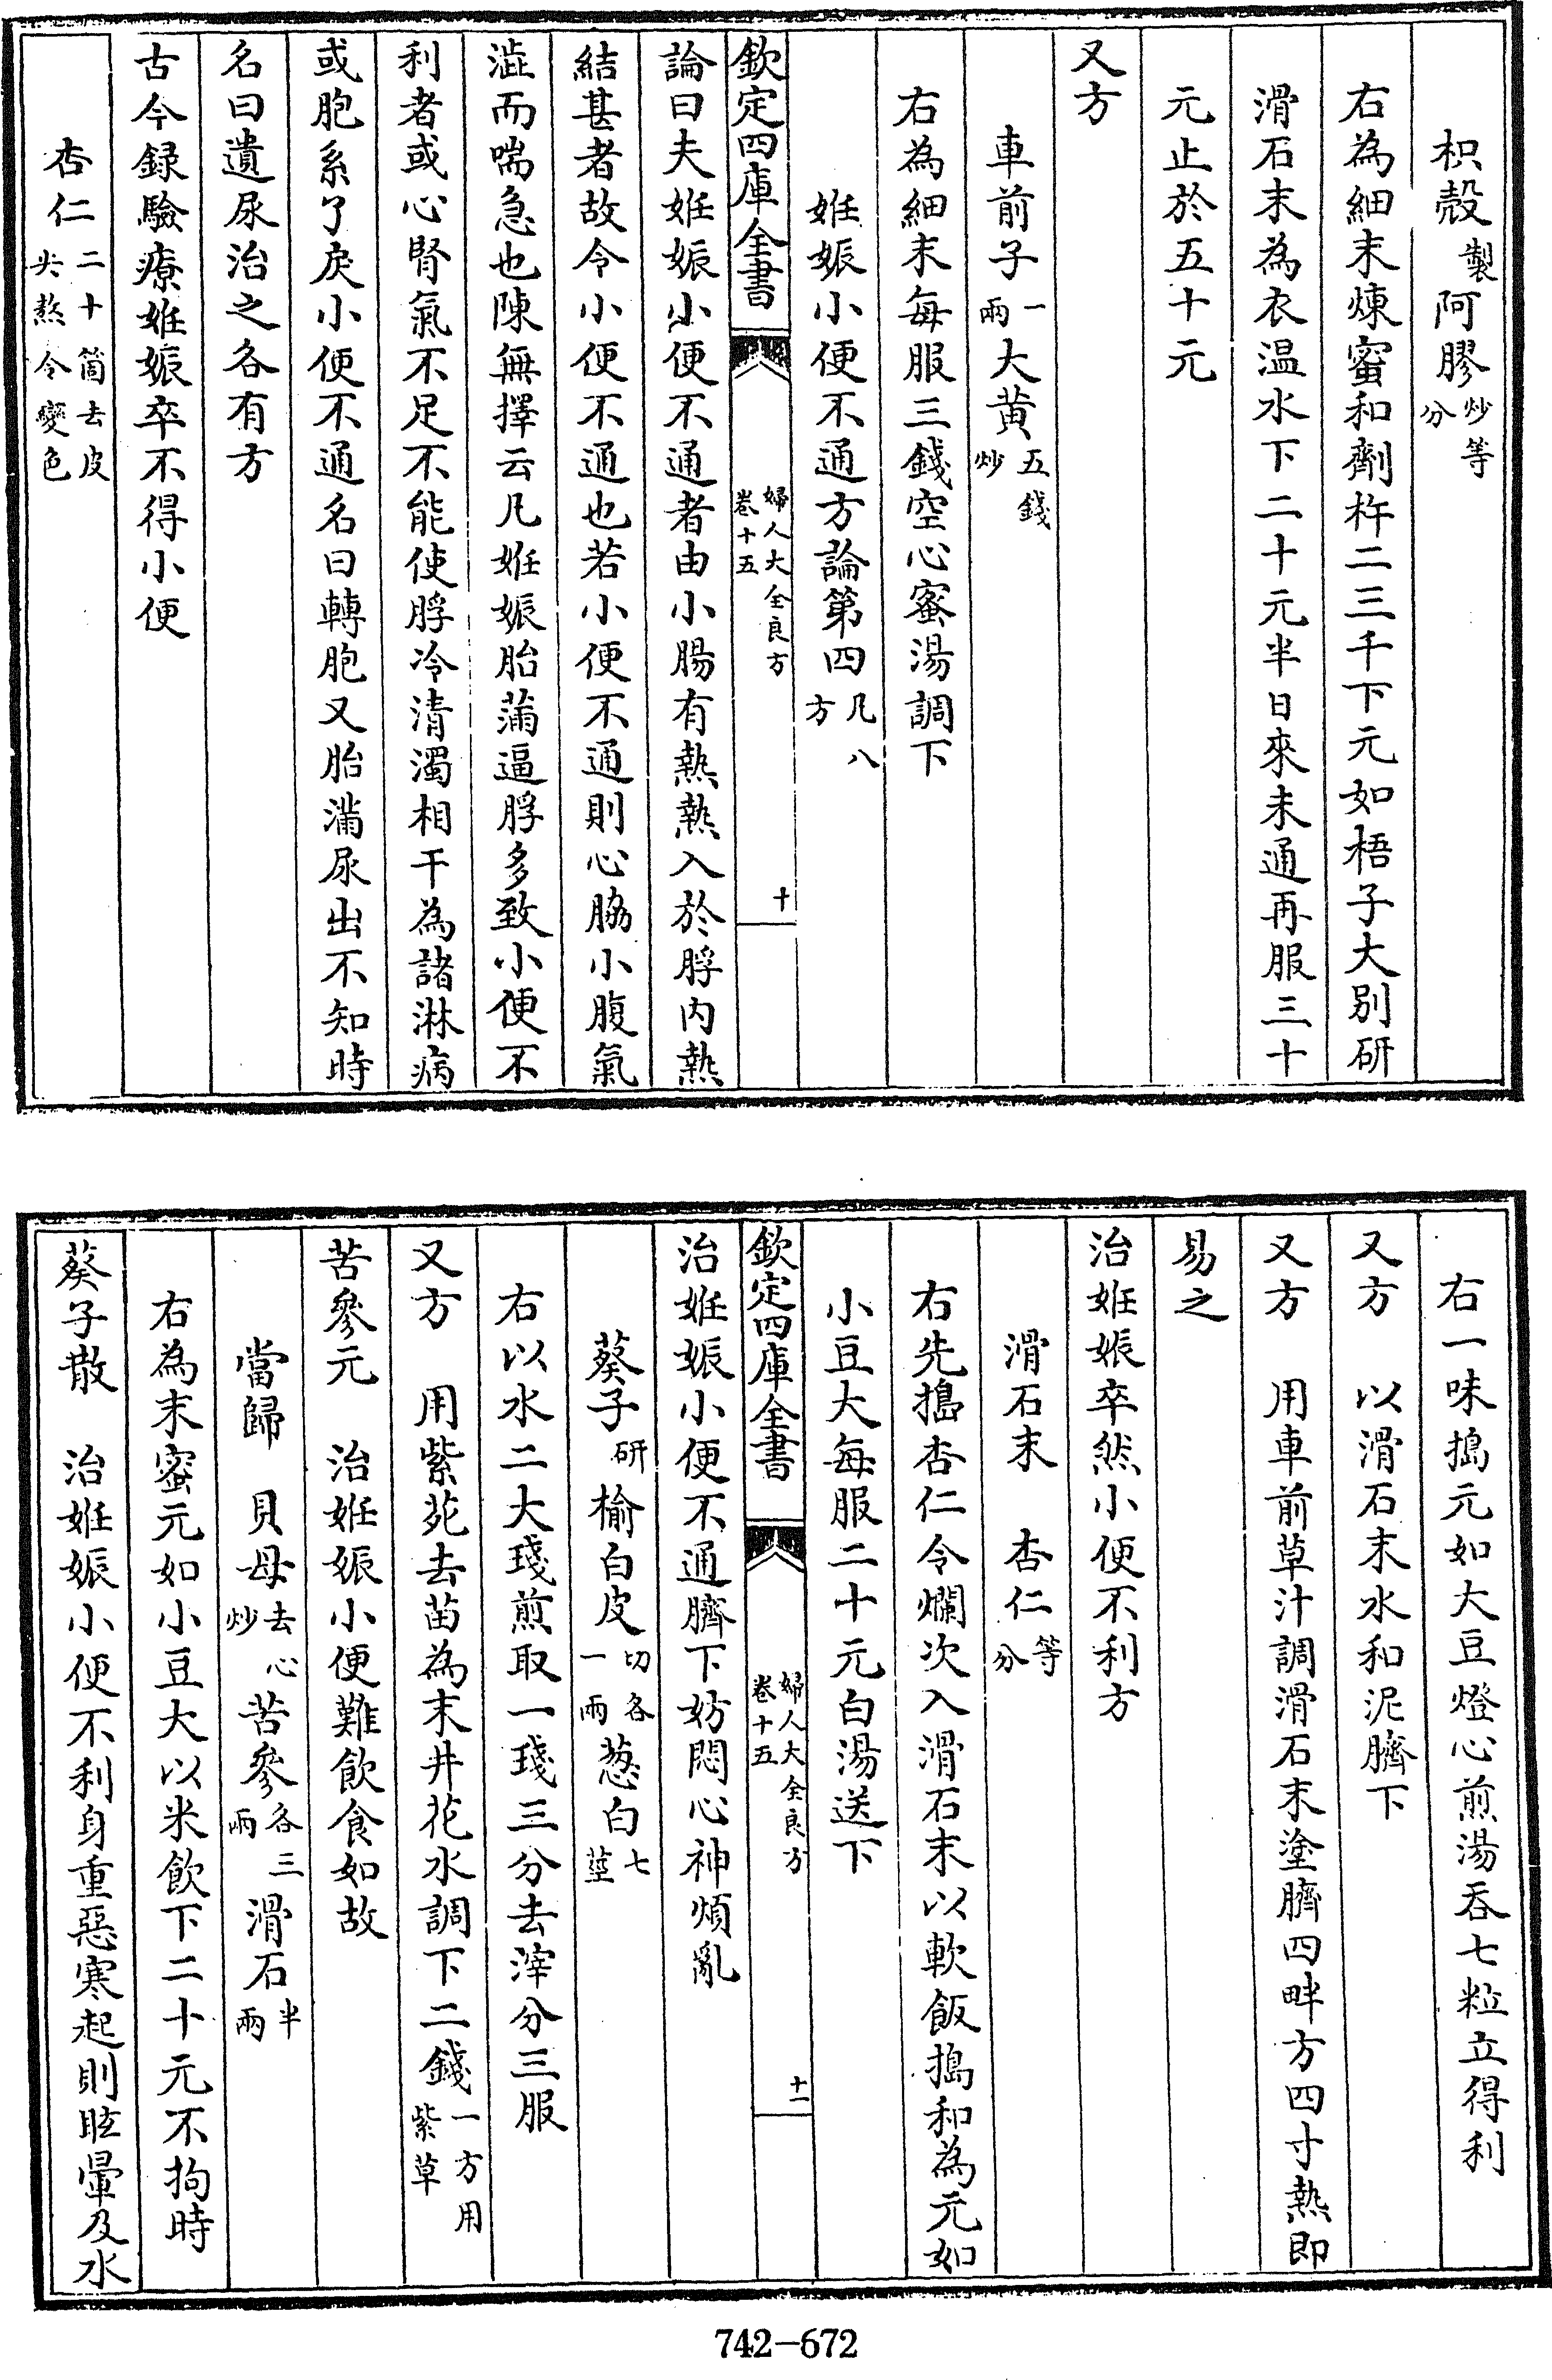 枳殼製阿膠炒等分
右為細末煉蜜和劑杵二三千下元如梧子大别研
滑石末為衣温水下二十元半日來未通再服三十
元止於五十元
又方
車前子一兩大黄五錢炒
右為細末每服三錢空心蜜湯調下
妊娠小便不通方論第四凡八方
欽定四庫全書
婦人大全良方
卷十五
十
論曰夫妊娠小便不通者由小腸有熱熱入於脬内熱
結甚者故令小便不通也若小便不通則心脇小腹氣
澁而喘急也陳無擇云凡妊娠胎蒲逼脬多致小便不
利者或心腎氣不足不能使脬冷清濁相干為諸淋病
或胞系了戾小便不通名曰轉胞又胎滿尿出不知時
名曰遺尿治之各有方
古今録驗療妊娠卒不得小便
杏仁二十箇去皮尖熬令變色
右一味搗元如大豆燈心煎湯吞七粒立得利
又方 以滑石末水和泥臍下
又方 用車前草汁調滑石末塗臍四畔方四寸熱即
易之
治妊娠卒然小便不利方
滑石末 杏仁等分
右先搗杏仁令爛次入滑石末以軟飯搗和為元如
小豆大每服二十元白湯送下
欽定四庫全書
婦人大全良方
卷十五
十一
治妊娠小便不通臍下妨悶心神煩亂
葵子研榆白皮切各一兩葱白七莖
右以水二大琖煎取一琖三分去滓分三服
又方 用紫苑去苗為末井花水調下二錢一方用紫草
苦參元 治妊娠小便難飲食如故
當歸 貝母去心炒苦參各三兩滑石半兩
右為末蜜元如小豆大以米飲下二十元不拘時
葵子散 治妊娠小便不利身重惡寒起則眩暈及水
742-672